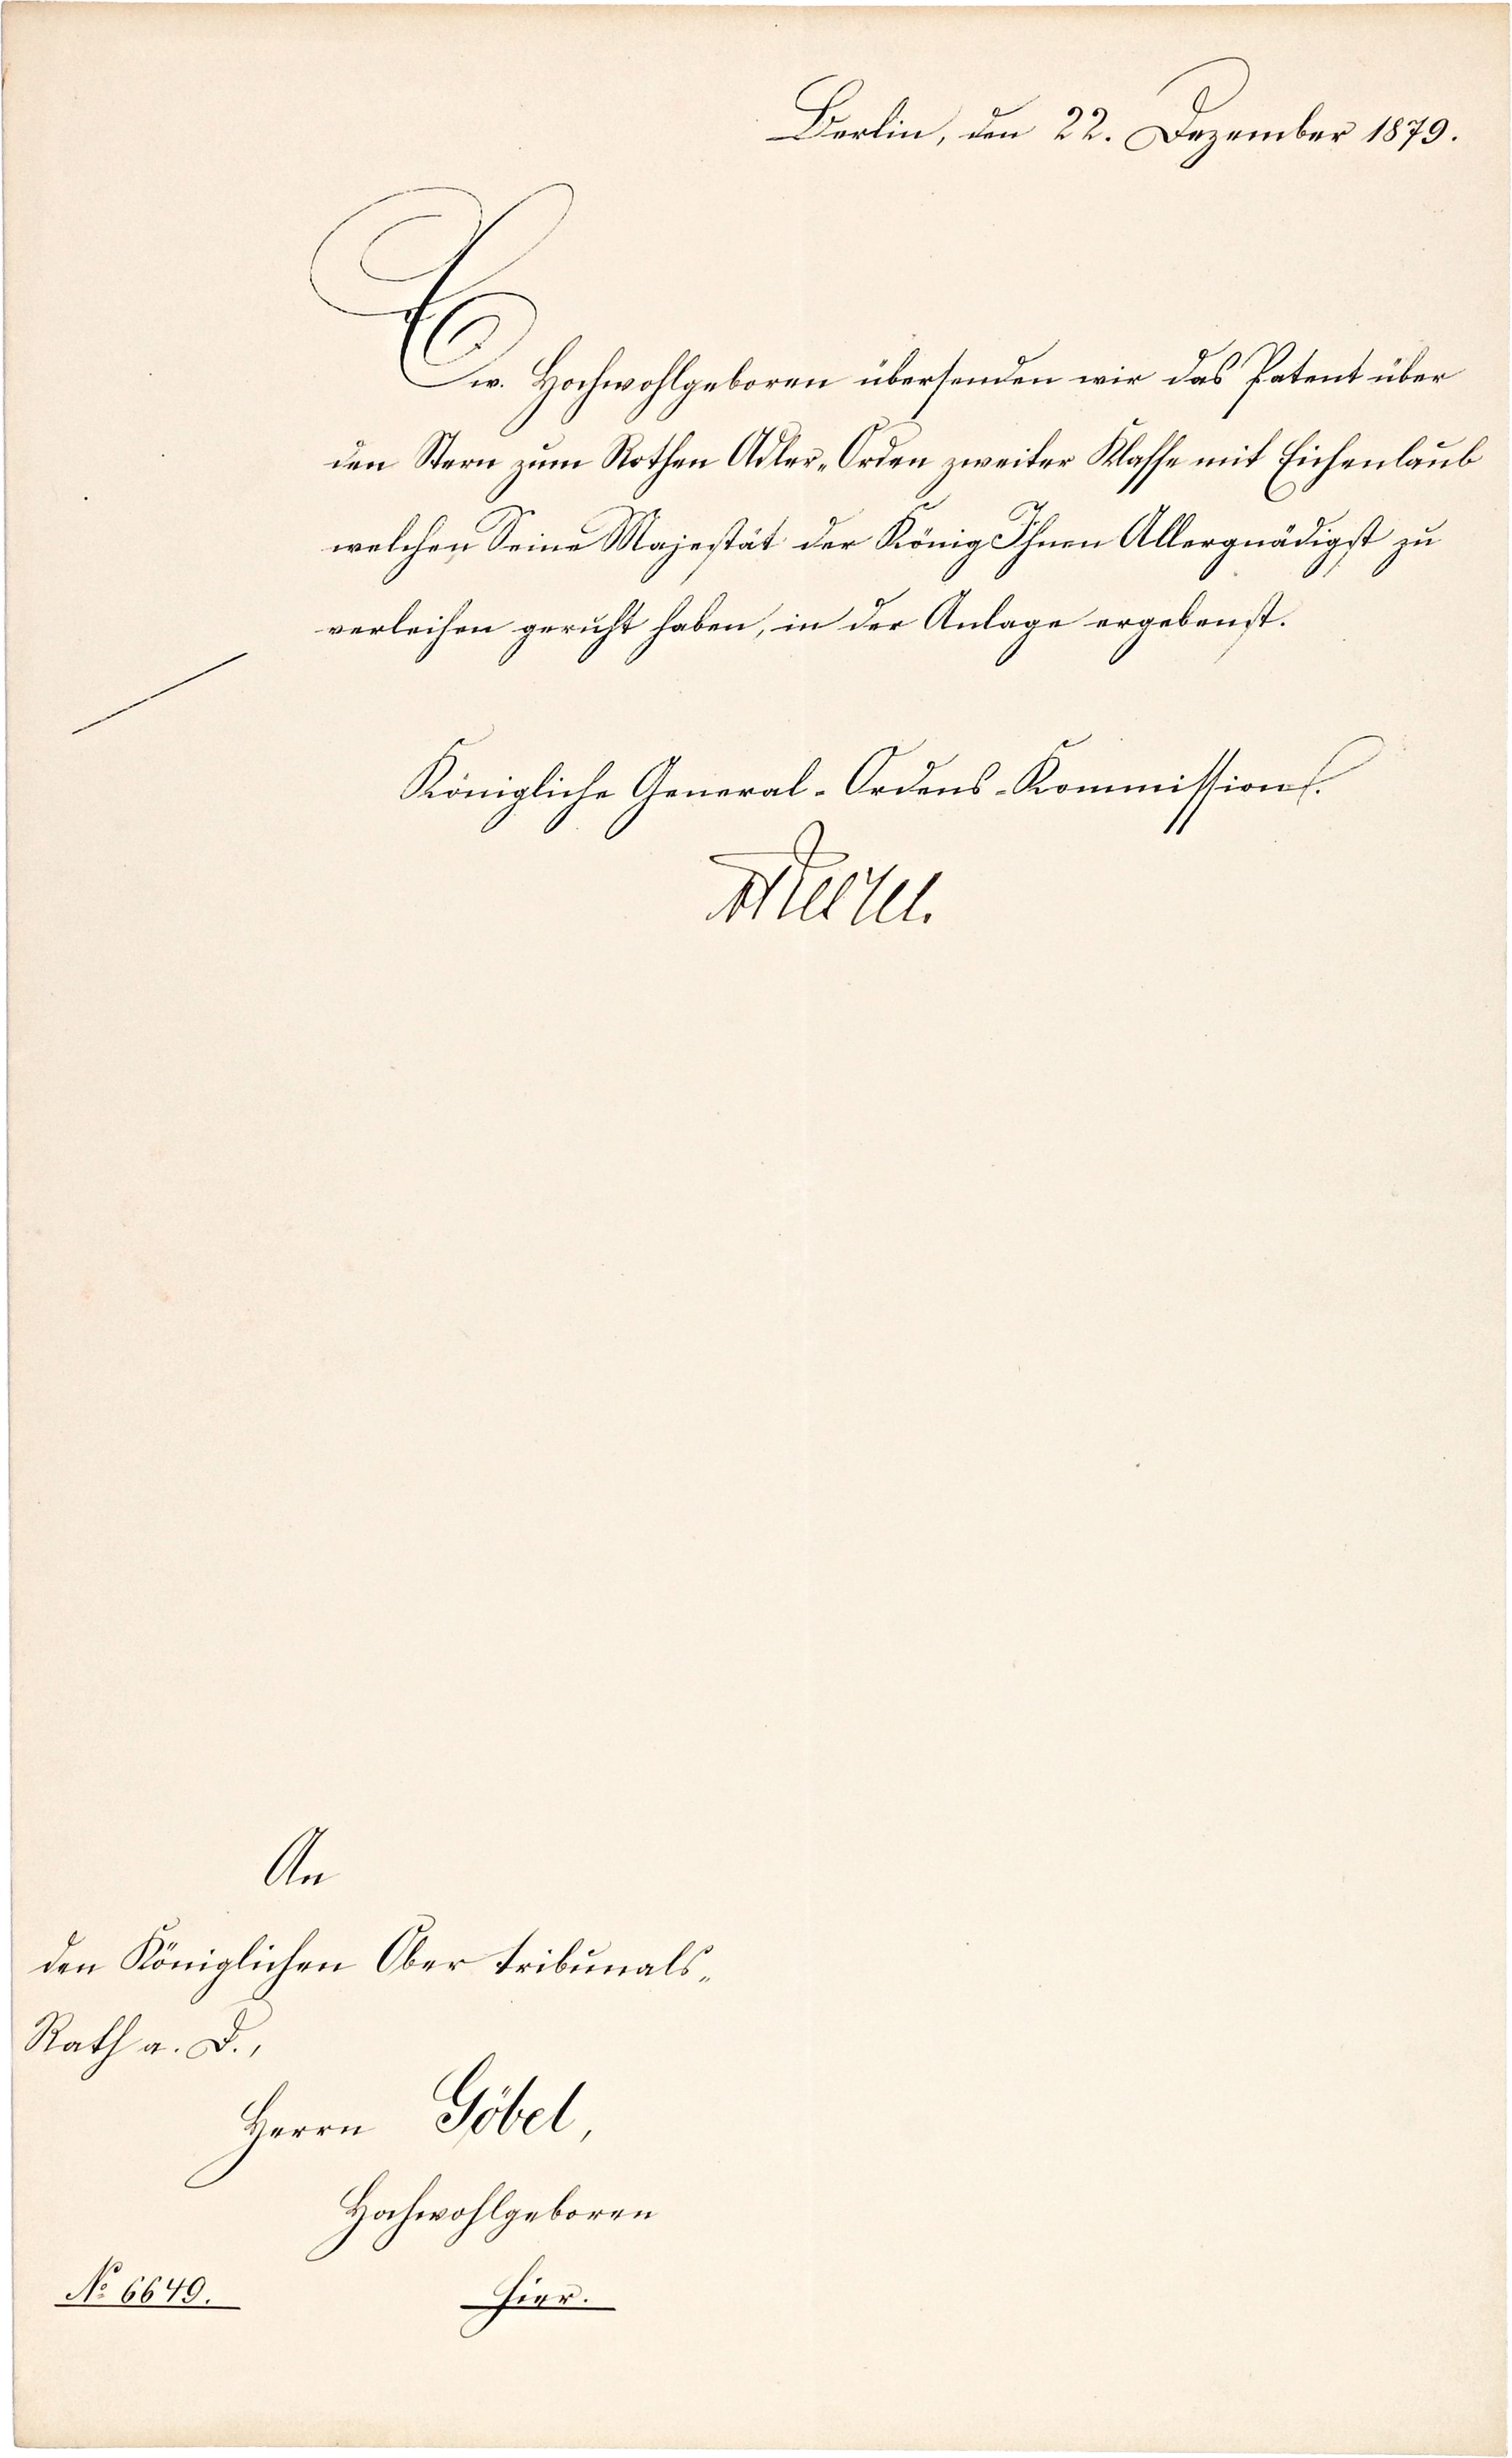 Berlin, den 22. Dezember 1879.
Ew. Hochwohlgeboren übersenden wir das Patent über
den Stern zum Rothen Adler-Orden zweiter Klasse mit Eichenlaub
welchen Seine Majestät der König Ihnen Allergnädigst zu
verleihen geruht haben, in der Anlage ergebenst.
Königliche General-Ordens-Kommission.
An
den Königlichen Ober tribunals-
Rath a. D.,
Herrn Göbel,
Hochwohlgeboren
No 6649. hier.